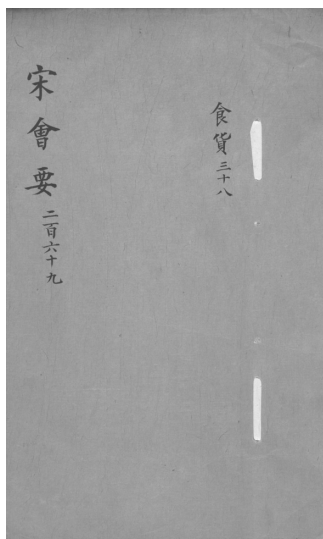 食貨三十八
宋會要二百六十九